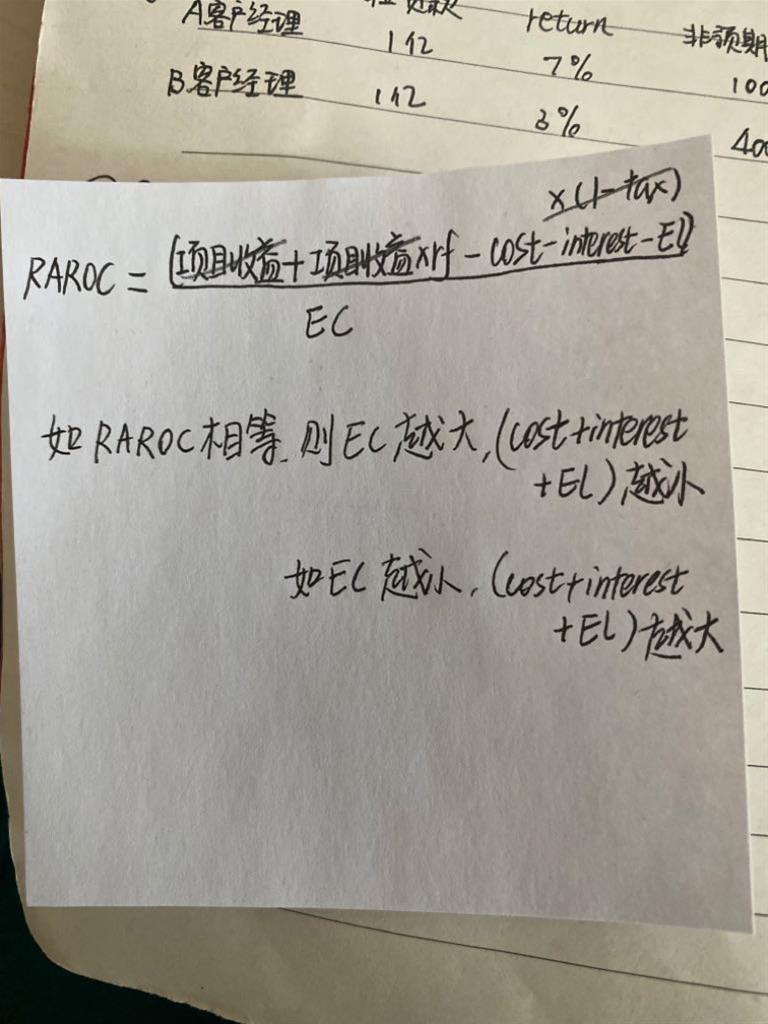 A客户经理 1亿 7% 100
B客户经理 1亿 3% 400
return
×(1-tax)
RAROC = (项目收益+项目收益×rf - cost-interest-EL)
EC
如RAROC相等,则EC越大,(cost+interest
+EL)越小
如EC越小,(cost+interest
+EL)越大